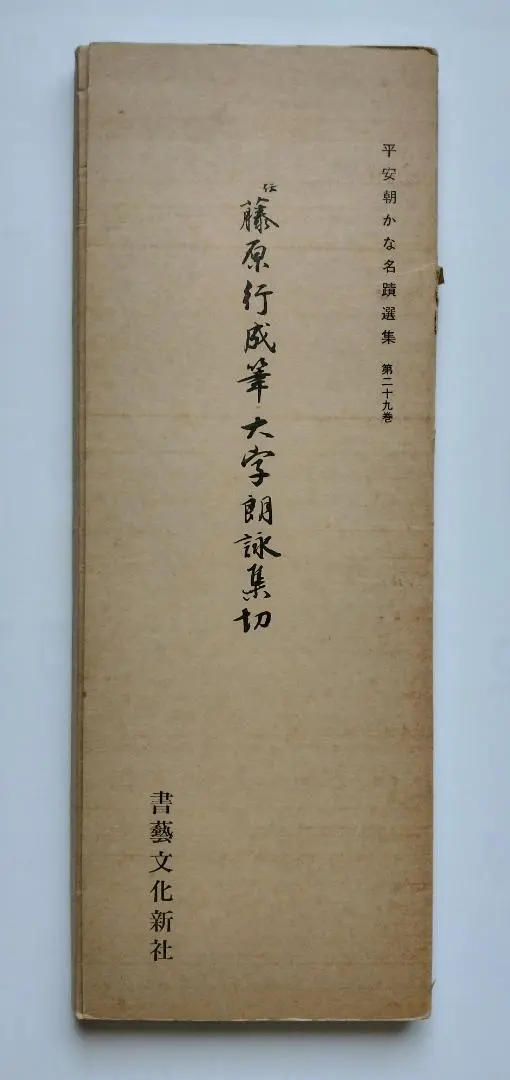 平安朝かな名蹟選集 第二十九巻
伝 藤原行成筆大字朗詠集切
書藝文化新社